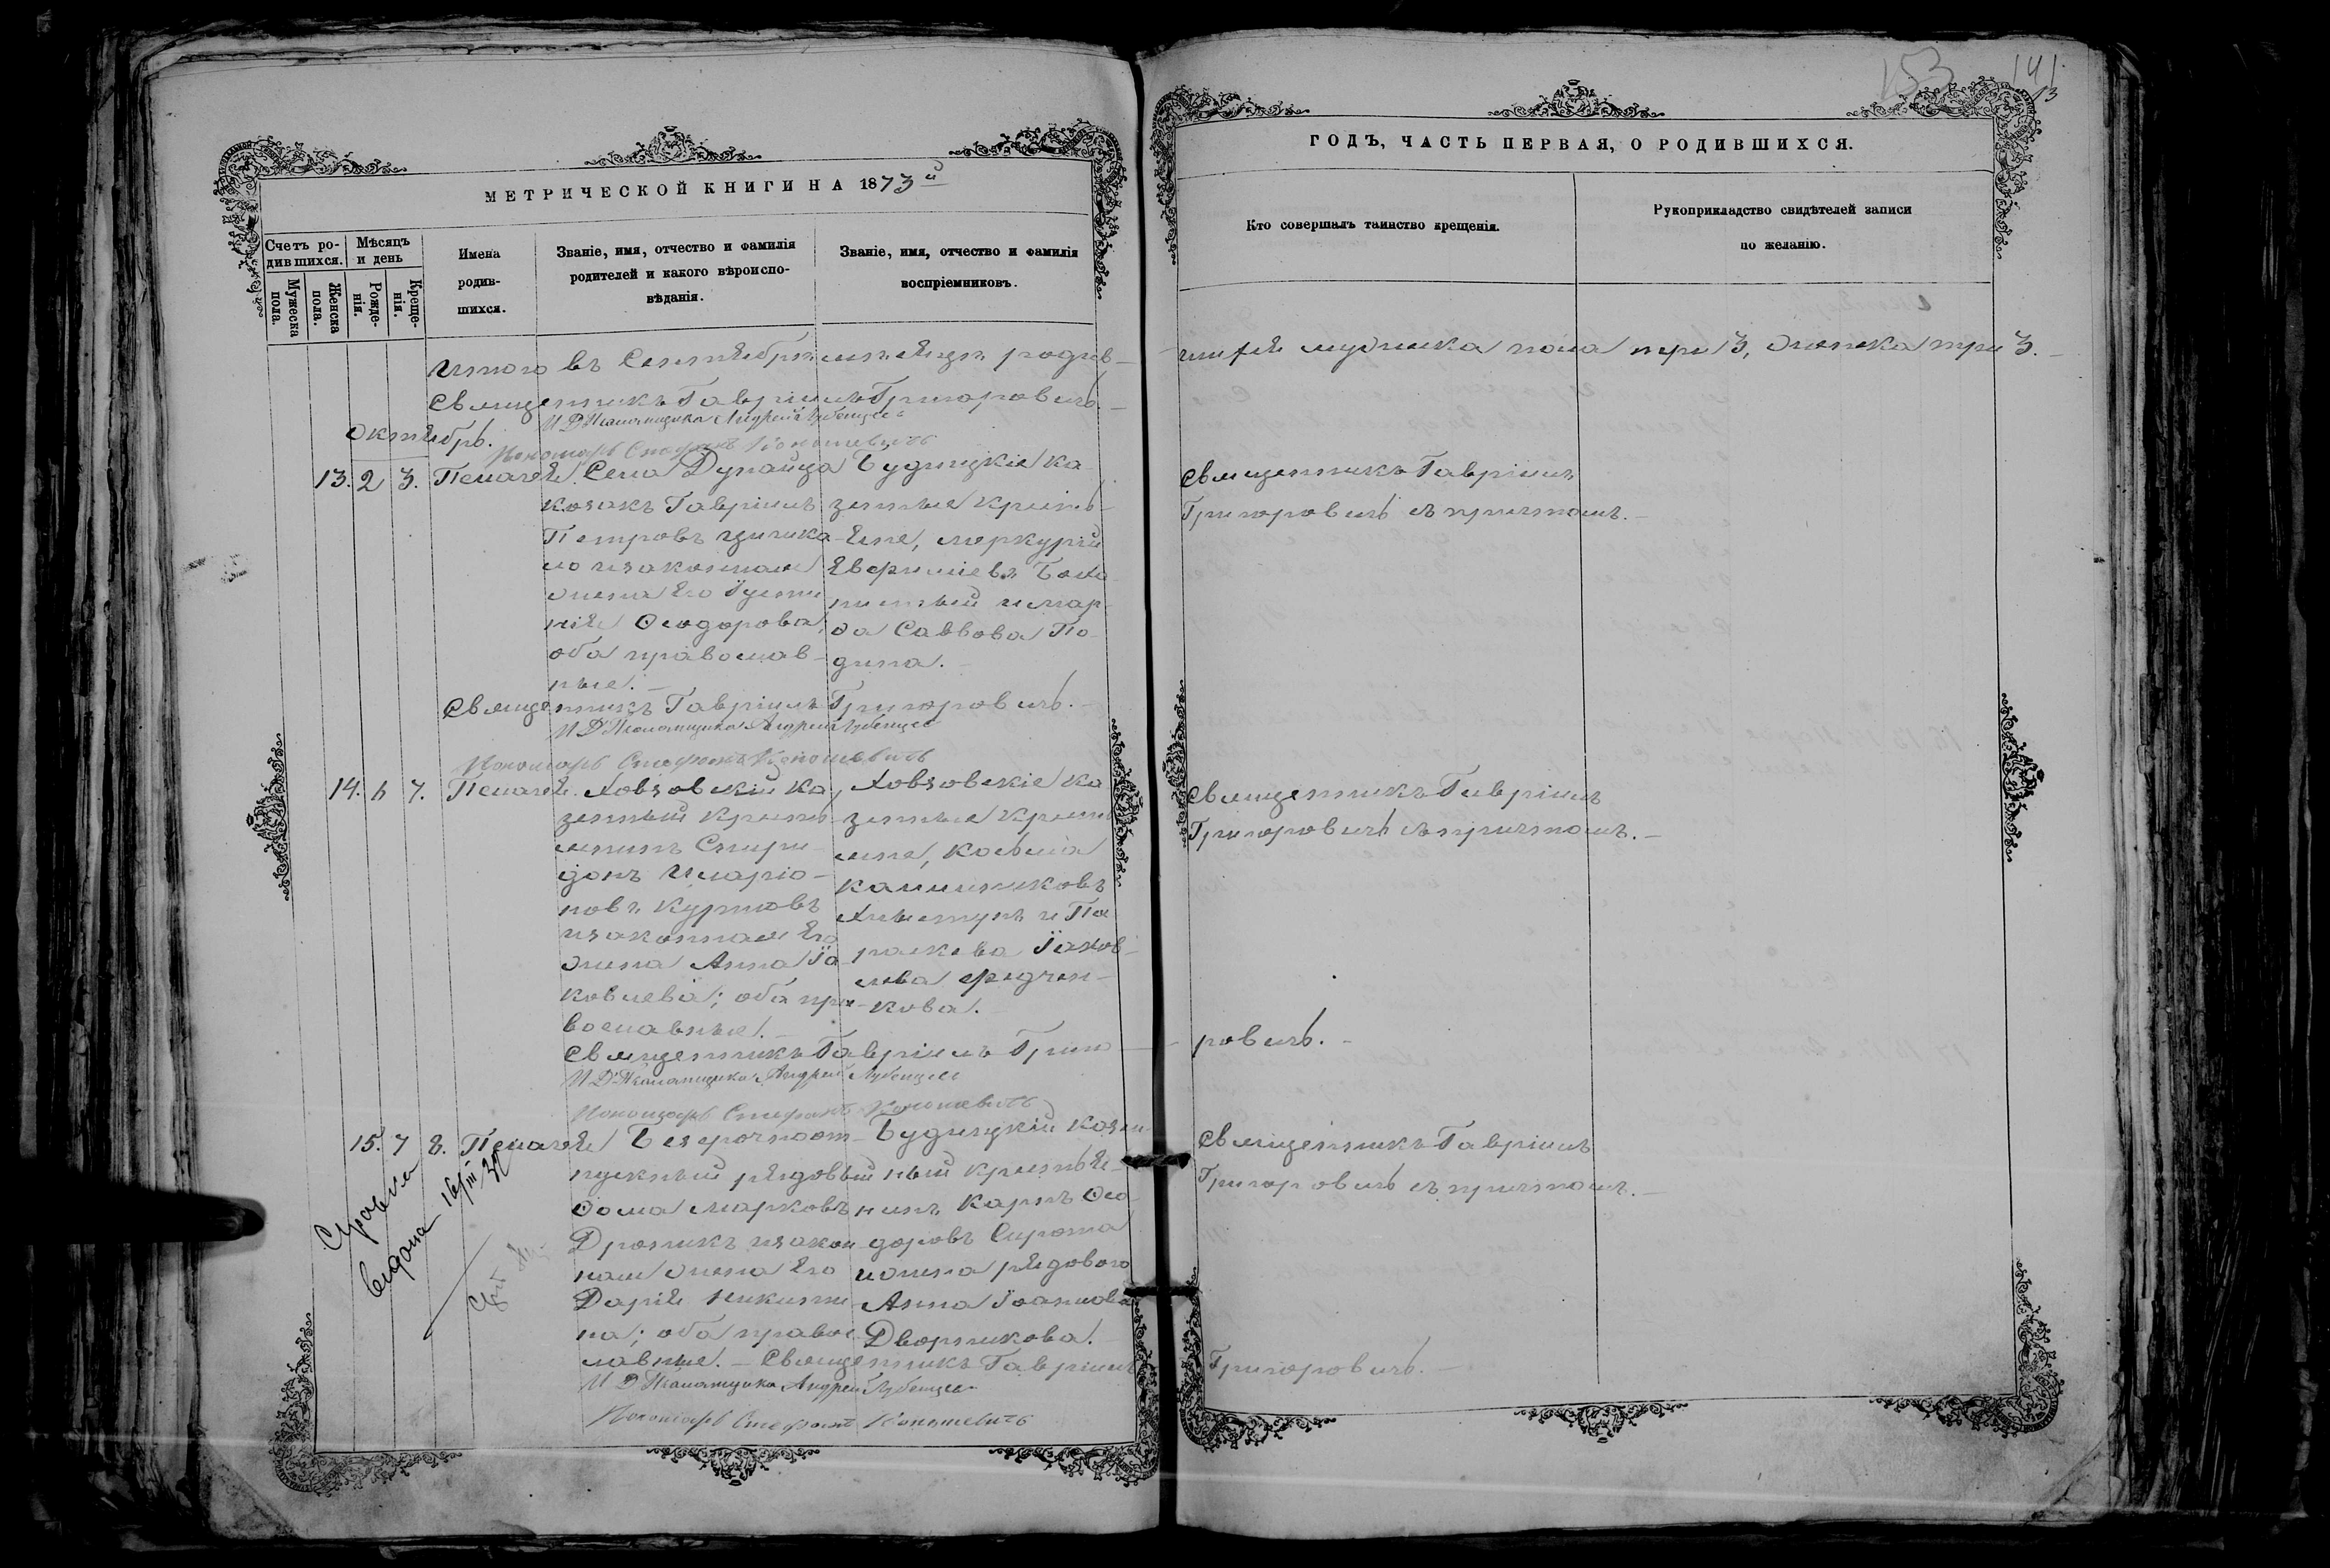 153
141
13
МЕТРИЧЕСКОЙ КНИГИ НА 1873й
ГОДЪ, ЧАСТЬ ПЕРВАЯ, О РОДИВШИХСЯ.
Счетъ ро-
дившихся.
Мѣсяцъ
и день
Мужеска
пола.
Женска
пола.
Рожде-
нія.
Креще-
нія.
Имена
родив-
шихся.
Званіе, имя, отчество и фамилія
родителей и какого вѣроиспо-
вѣданія.
Званіе, имя, отчество и фамилія
воспріемниковъ.
Кто совершалъ таинство крещенія.
Рукоприкладство свидѣтелей записи
по желанію.
Итого въ Сентябрѣ мѣсяцѣ родив-
шихся мужеска пола три 3, женска три 3.
Священникъ Гавріилъ Григоровичъ.
И Д Псаломщика Андрей
Октябрь.
Пономарь Стефанъ Кононевичъ
13. 2 3. Пелагея
Села Дунайца
козакъ Гавріилъ
Петровъ
и законная
жена его Іусти
нія Ѳеодорова,
оба православ-
ные.
Будищкіе ка
зенные кресть-
яне, Меркурій
Евфиміевъ
и Мар-
ѳа Саввова
Священникъ Гавріилъ
Григоровичъ съ причтомъ.
Священникъ Гавріилъ Григоровичъ.
И Д Псаломщика Андрей
Пономарь Стефанъ Кононевичъ
14. 6 7. Пелагея.
Ховзовскій ка
зенный кресть
янинъ Спири
донъ Иларіо-
новъ Курновъ
и законная его
жена Анна Іа
ковлева; оба пра
вославные.
Ховзовскіе ка
зенные кресть
яне, Косьма
Каллиниковъ
и Па
раскева Іаков-
лева Федчен-
кова.
Священникъ Гавріилъ
Григоровичъ съ причтомъ.
Священникъ Гавріилъ Григо
ровичъ.
И Д Псаломщика Андрей
Пономарь Стефанъ Кононевичъ
15. 7 8. Пелагея
Безсрочноот-
пускный рядовый
Ѳома Марковъ
и закон
ная жена его
Дарія Никити
на; оба право
славные.
Будищкій казен
ный крестья-
нинъ Карпъ Ѳео
доровъ Сирота
и жена рядового
Анна Іоаннова
Дворникова.
Священникъ Гавріилъ
Григоровичъ съ причтомъ.
Священникъ Гавріилъ
Григоровичъ.
И Д Псаломщика Андрей
Пономарь Стефанъ Кононевичъ